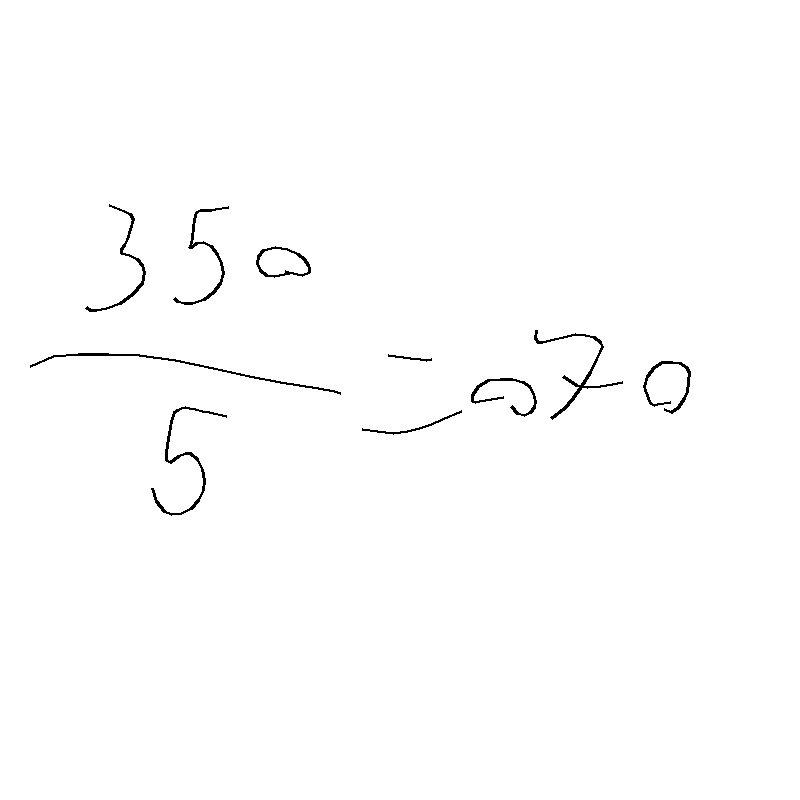 350
5
= 070